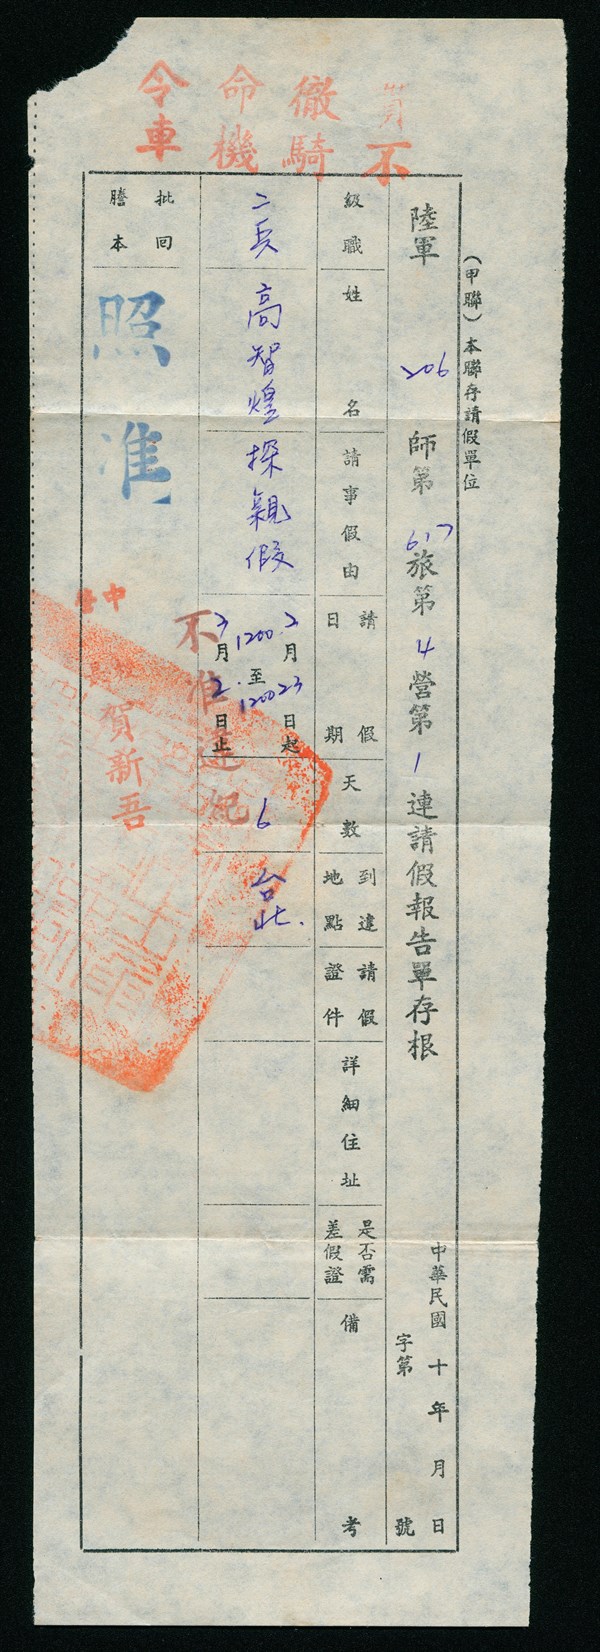 貫徹命令
不騎機車
（甲聯）本聯存請假單位
陸軍 206 師第 617 旅第 4 營第 1 連請假報告單存根
中華民國 十 年 月 日
字第 號
級職
姓名
請假事由
請假日期
天數
到達地點
請假證件
詳細住址
是否需差假證
備考
二兵
高智煌
探親假
2月23日起
1200至1200
3月2日止
6
台北.
不准違紀
批回謄本
照准
賀新吾